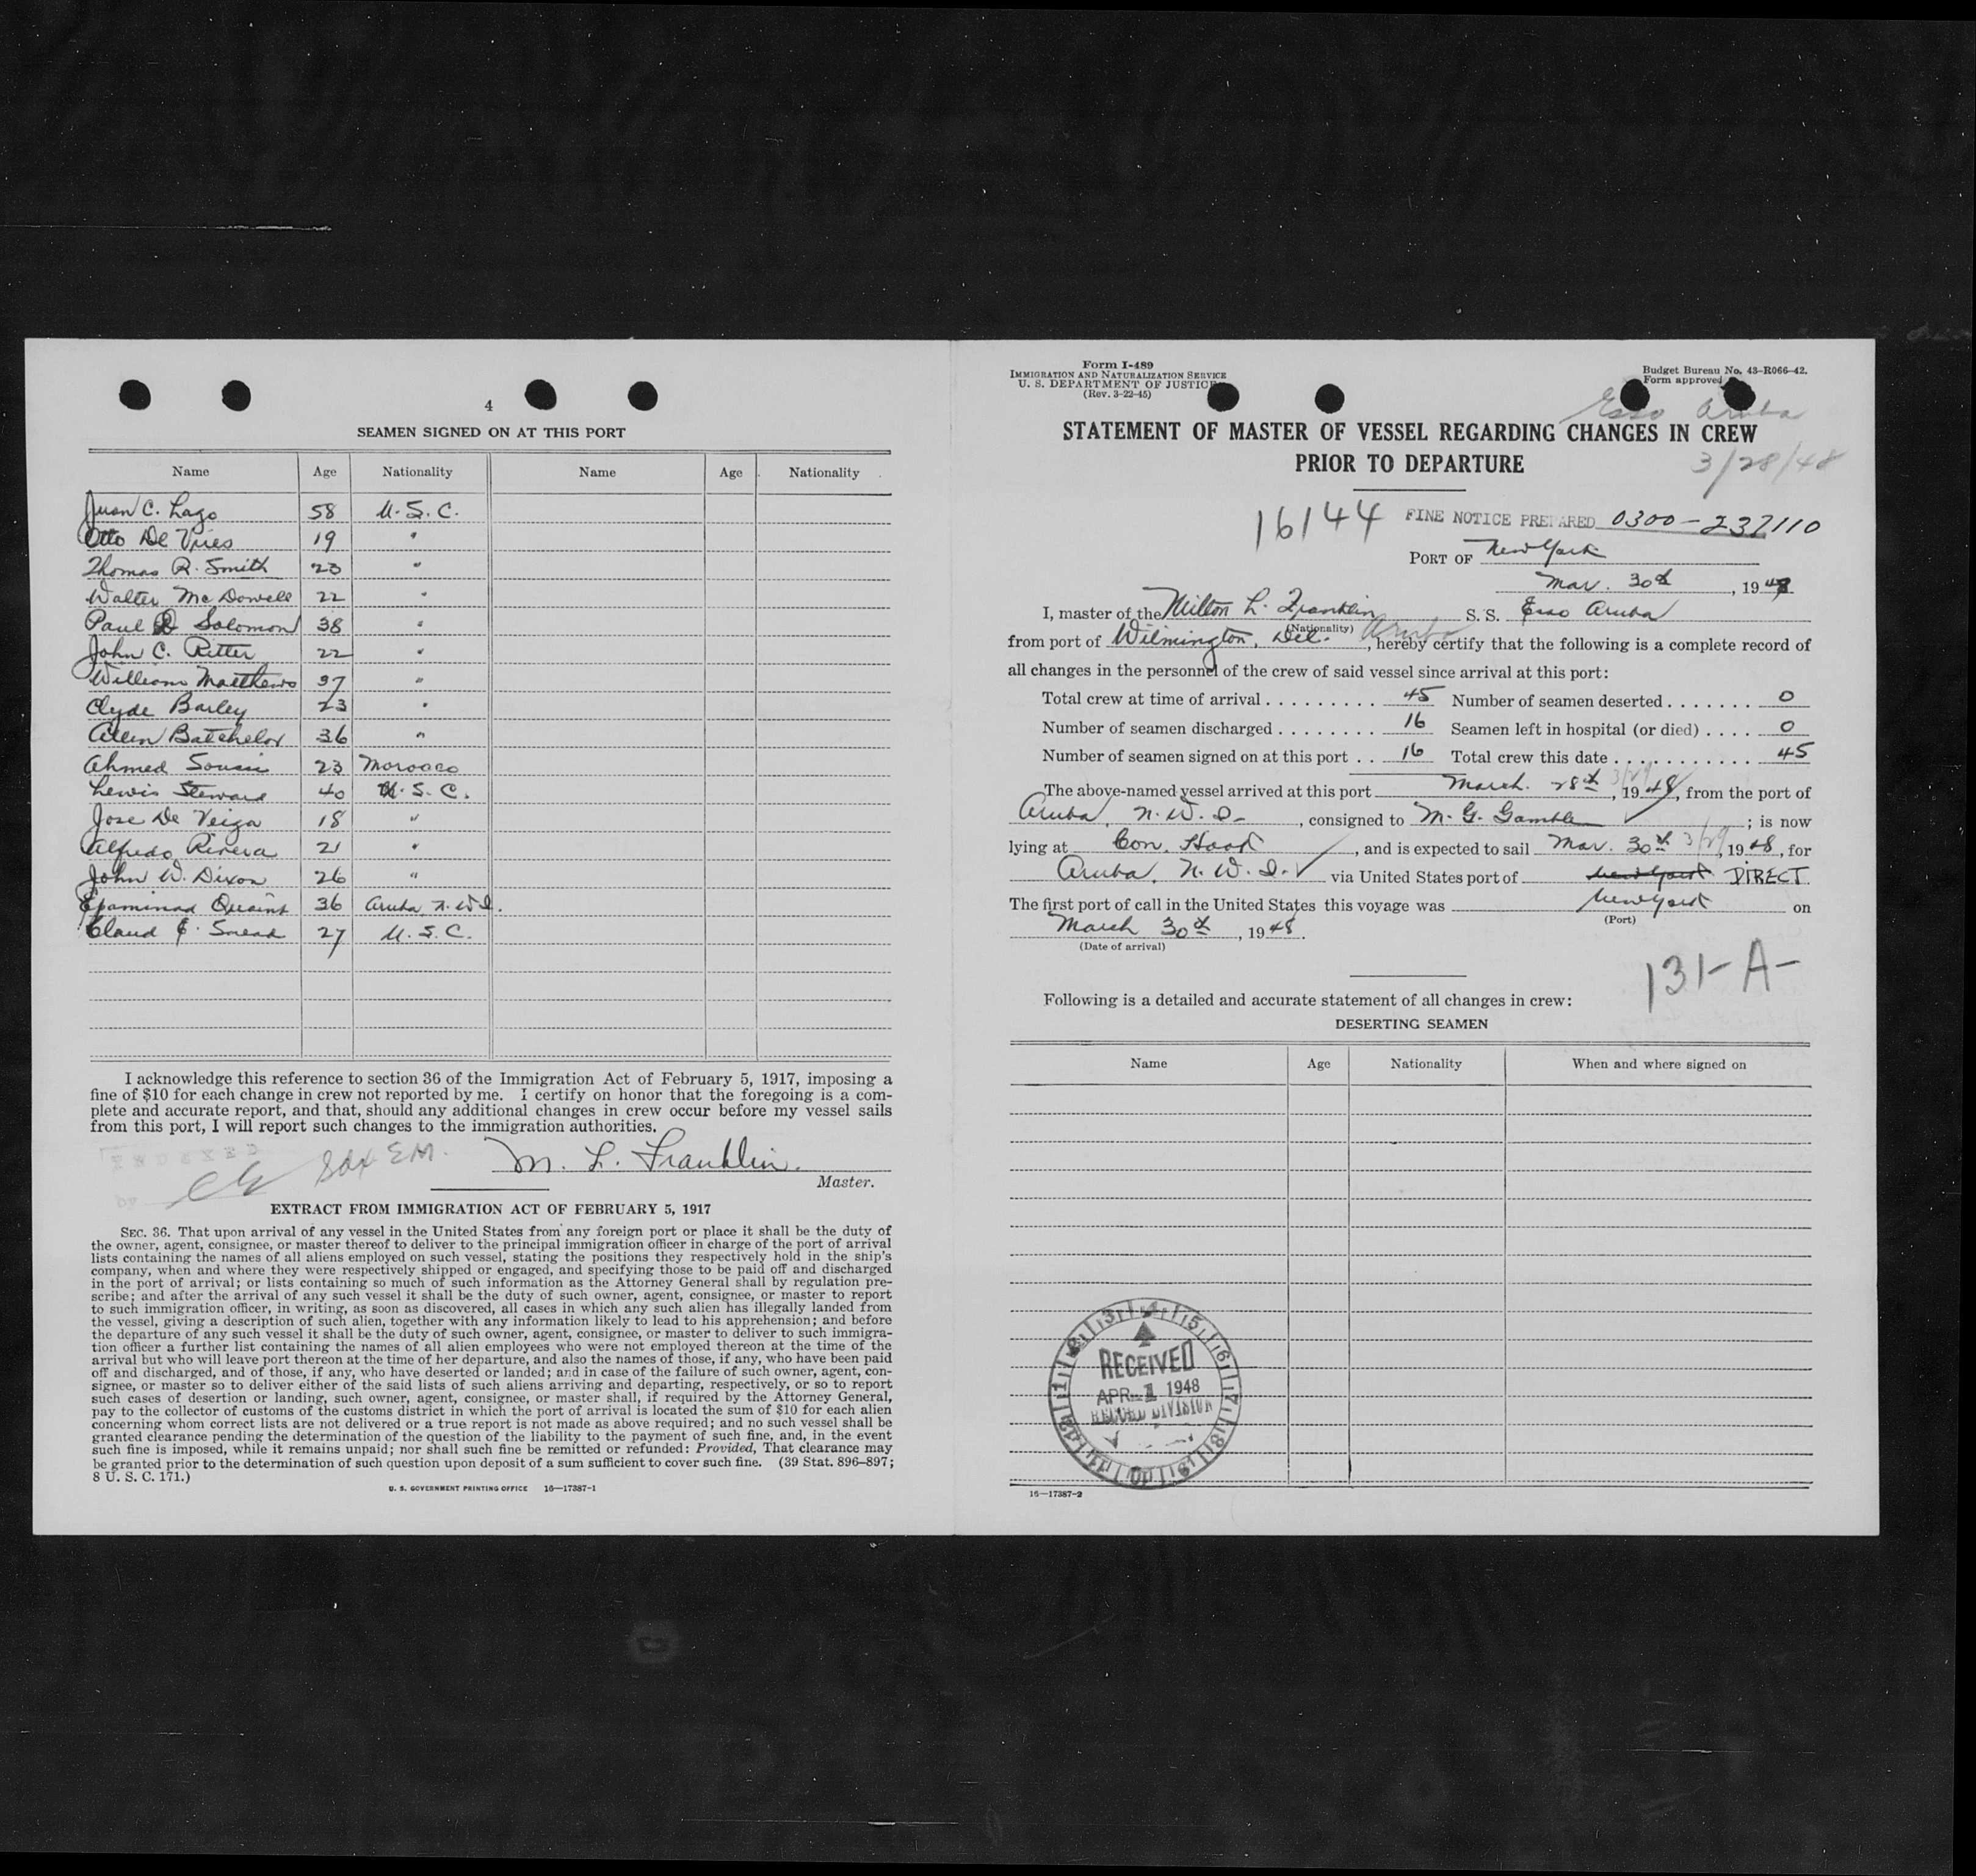 4
SEAMEN SIGNED ON AT THIS PORT
Name Age Nationality Name Age Nationality
Juan C. Lago 58 U.S.C.
Otto De Vries 19 "
Thomas R. Smith 23 "
Walter McDowell 22 "
Paul D Solomon 38 "
John C. Ritter 22 "
William Matthews 37 "
Clyde Barley 23 "
Allen Batchelor 36 "
Ahmed Sousi 23 Morocco
Lewis Steward 40 U.S.C.
Jose De Veiga 18 "
Alfredo Rivera 21 "
John W. Dixon 26 "
Epaminad Quaint 36 Aruba, N.W.I.
Claud E. Snead 27 U.S.C.
I acknowledge this reference to section 36 of the Immigration Act of February 5, 1917, imposing a
fine of $10 for each change in crew not reported by me. I certify on honor that the foregoing is a com-
plete and accurate report, and that, should any additional changes in crew occur before my vessel sails
from this port, I will report such changes to the immigration authorities.
INDEXED
by
M. L. Franklin.
Master.
EXTRACT FROM IMMIGRATION ACT OF FEBRUARY 5, 1917
SEC. 36. That upon arrival of any vessel in the United States from any foreign port or place it shall be the duty of
the owner, agent, consignee, or master thereof to deliver to the principal immigration officer in charge of the port of arrival
lists containing the names of all aliens employed on such vessel, stating the positions they respectively hold in the ship's
company, when and where they were respectively shipped or engaged, and specifying those to be paid off and discharged
in the port of arrival; or lists containing so much of such information as the Attorney General shall by regulation pre-
scribe; and after the arrival of any such vessel it shall be the duty of such owner, agent, consignee, or master to report
to such immigration officer, in writing, as soon as discovered, all cases in which any such alien has illegally landed from
the vessel, giving a description of such alien, together with any information likely to lead to his apprehension; and before
the departure of any such vessel it shall be the duty of such owner, agent, consignee, or master to deliver to such immigra-
tion officer a further list containing the names of all alien employees who were not employed thereon at the time of the
arrival but who will leave port thereon at the time of her departure, and also the names of those, if any, who have been paid
off and discharged, and of those, if any, who have deserted or landed; and in case of the failure of such owner, agent, con-
signee, or master so to deliver either of the said lists of such aliens arriving and departing, respectively, or so to report
such cases of desertion or landing, such owner, agent, consignee, or master shall, if required by the Attorney General,
pay to the collector of customs of the customs district in which the port of arrival is located the sum of $10 for each alien
concerning whom correct lists are not delivered or a true report is not made as above required; and no such vessel shall be
granted clearance pending the determination of the question of the liability to the payment of such fine, and, in the event
such fine is imposed, while it remains unpaid; nor shall such fine be remitted or refunded: Provided, That clearance may
be granted prior to the determination of such question upon deposit of a sum sufficient to cover such fine. (39 Stat. 896–897;
8 U. S. C. 171.)
U. S. GOVERNMENT PRINTING OFFICE 16—17387-1
Form I-489
IMMIGRATION AND NATURALIZATION SERVICE
U. S. DEPARTMENT OF JUSTICE
(Rev. 3-22-45)
Budget Bureau No. 43-R066-42.
Form approved
Esso Aruba
STATEMENT OF MASTER OF VESSEL REGARDING CHANGES IN CREW
PRIOR TO DEPARTURE
3/28/48
16144 FINE NOTICE PREPARED 0300-237110
PORT OF New York
Mar. 30th, 1948
I, master of the Milton L. Franklin S. S. Esso Aruba
(Nationality)
from port of Wilmington, Del. Aruba, hereby certify that the following is a complete record of
all changes in the personnel of the crew of said vessel since arrival at this port:
Total crew at time of arrival 45 Number of seamen deserted 0
Number of seamen discharged 16 Seamen left in hospital (or died) 0
Number of seamen signed on at this port 16 Total crew this date 45
The above-named vessel arrived at this port March 28th 3/29, 1948, from the port of
Aruba, N.W.I., consigned to M. G. Gamble; is now
lying at Con. Hook, and is expected to sail Mar. 30th 3/29, 1948, for
Aruba, N.W.I. via United States port of New York DIRECT
The first port of call in the United States this voyage was New York on
(Port)
March 30th, 1948.
(Date of arrival)
131-A-
Following is a detailed and accurate statement of all changes in crew:
DESERTING SEAMEN
Name Age Nationality When and where signed on
RECEIVED
APR 1 1948
RECORD DIVISION
16—17387-2